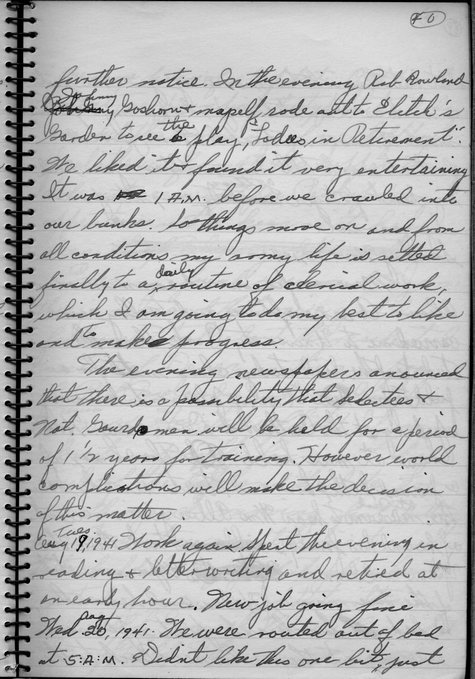 40
further notice. In the evening Rob Rowland
John Goshorn & myself rode out to Elitch's
Garden to see the play, "Ladies in Retirement".
We liked it & found it very entertaining
It was 1 A.M. before we crawled into
our bunks. So things move on and from
all conditions my army life is settled
finally to a daily routine of clerical work,
which I am going to do my best to like
and to make progress.
The evening newspapers anounced
that there is a possibility that Selectees &
Nat. Guardsmen will be held for a period
of 1 1/2 years for training. However world
complications will make the decision
of this matter.
Tues.
Aug 19, 1941 Work again. Spent the evening in
reading & letter writing and retired at
an early hour. New job going fine
Wed Aug 20, 1941. We were routed out of bed
at 5:A.M. Didnt like this one bit, just